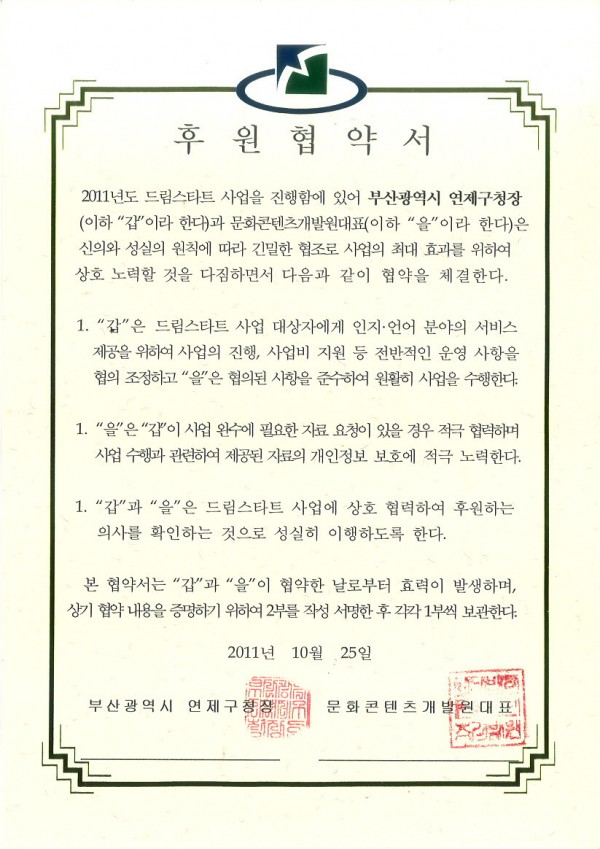 후 원 협 약 서
2011년도 드림스타트 사업을 진행함에 있어 부산광역시 연제구청장
(이하 “갑”이라 한다)과 문화콘텐츠개발원대표(이하 “을”이라 한다)은
신의와 성실의 원칙에 따라 긴밀한 협조로 사업의 최대 효과를 위하여
상호 노력할 것을 다짐하면서 다음과 같이 협약을 체결한다.
1. “갑”은 드림스타트 사업 대상자에게 인지·언어 분야의 서비스
제공을 위하여 사업의 진행, 사업비 지원 등 전반적인 운영 사항을
협의 조정하고 “을”은 협의된 사항을 준수하여 원활히 사업을 수행한다.
1. “을”은 “갑”이 사업 완수에 필요한 자료 요청이 있을 경우 적극 협력하며
사업 수행과 관련하여 제공된 자료의 개인정보 보호에 적극 노력한다.
1. “갑”과 “을”은 드림스타트 사업에 상호 협력하여 후원하는
의사를 확인하는 것으로 성실히 이행하도록 한다.
본 협약서는 “갑”과 “을”이 협약한 날로부터 효력이 발생하며,
상기 협약 내용을 증명하기 위하여 2부를 작성 서명한 후 각각 1부씩 보관한다.
2011년 10월 25일
부산광역시 연제구청장 문화콘텐츠개발원대표